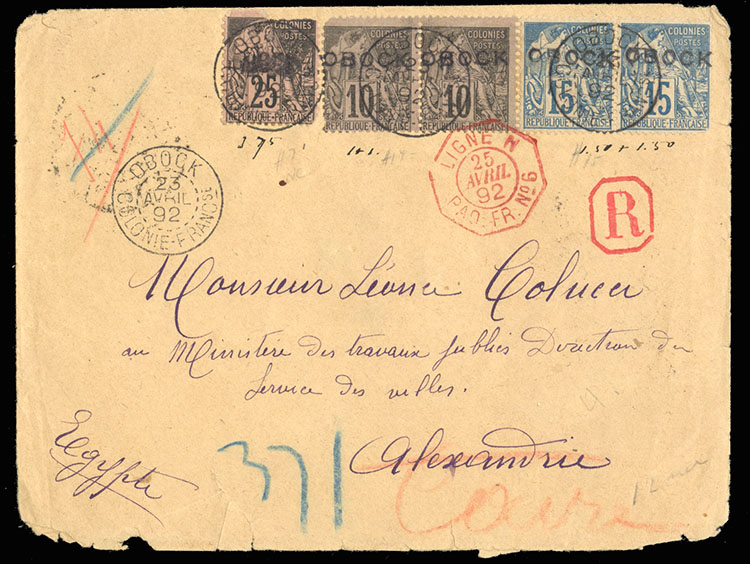 COLONIES POSTES OBOCK 25 RÉPUBLIQUE FRANÇAISE
COLONIES POSTES OBOCK 10 RÉPUBLIQUE FRANÇAISE
COLONIES POSTES OBOCK 10 RÉPUBLIQUE FRANÇAISE
COLONIES POSTES OBOCK 15 RÉPUBLIQUE FRANÇAISE
COLONIES POSTES OBOCK 15 RÉPUBLIQUE FRANÇAISE
1.50 + 1.50
OBOCK
23
AVRIL
92
COLONIE-FRANCSE
LIGNE N
25
AVRIL
92
PAQ. FR. No 6
R
Monsieur Léonce Colucci
au Ministère des travaux publics Direction du
Service des villes.
Alexandrie
Egypte
371
Caire